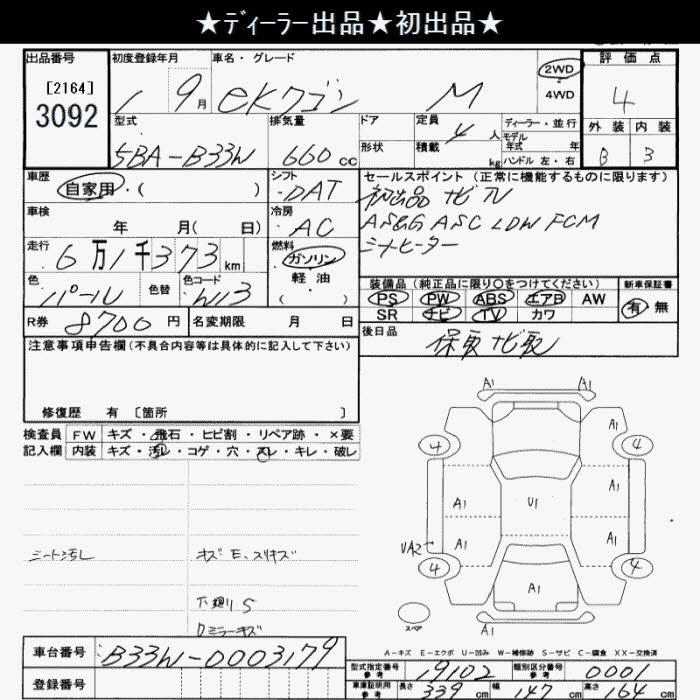 ★ディーラー出品★初出品★
出品番号
[2164]
3092
初度登録年月
1 9月
車名・グレード
eKワゴン M
2WD
・
4WD
評価点
4
外装 内装
B 3
型式
5BA-B33W
排気量
660cc
ドア
形状
定員
4人
積載
kg
ディーラー・並行
モデル
年式 年
ハンドル 左・右
車歴
自家用・( )
シフト
DAT
セールスポイント (正常に機能するものに限ります)
初出品 ナビ TV
AS&G ASC LDW FCM
シートヒーター
車検
年 月( 日)
冷房
AC
走行
6万1千373km
燃料
ガソリン
軽油
( )
色
パール
色替
色コード
W13
装備品 (純正品に限り○をつけてください)
PS PW ABS エアB AW
SR ナビ TV カワ
新車保証書
有・無
R券 8700円
名変期限 月 日
後日品
保取 ナビ取
注意事項申告欄(不具合内容等は具体的に記入して下さい)
修復歴 有 [箇所 ]
検査員
記入欄
FW キズ・飛石・ヒビ割・リペア跡・×要
内装 キズ・汚レ・コゲ・穴・スレ・キレ・破レ
シート汚し
キズ E、スリキズ
下廻りS
Dミラーキズ
A1 A1
4 4
A1 U1 A1
UA2 A1 A1
4 4
A1
A1
スペア
A-キズ E-エクボ U-凹み W-補修跡 S-サビ C-腐食 XX-交換済
車台番号 B33W-0003179
登録番号
型式指定番号
参考
19102
類別区分番号
参考
0001
車庫証明用
参考
長さ 339cm 幅 147cm 高さ 164cm